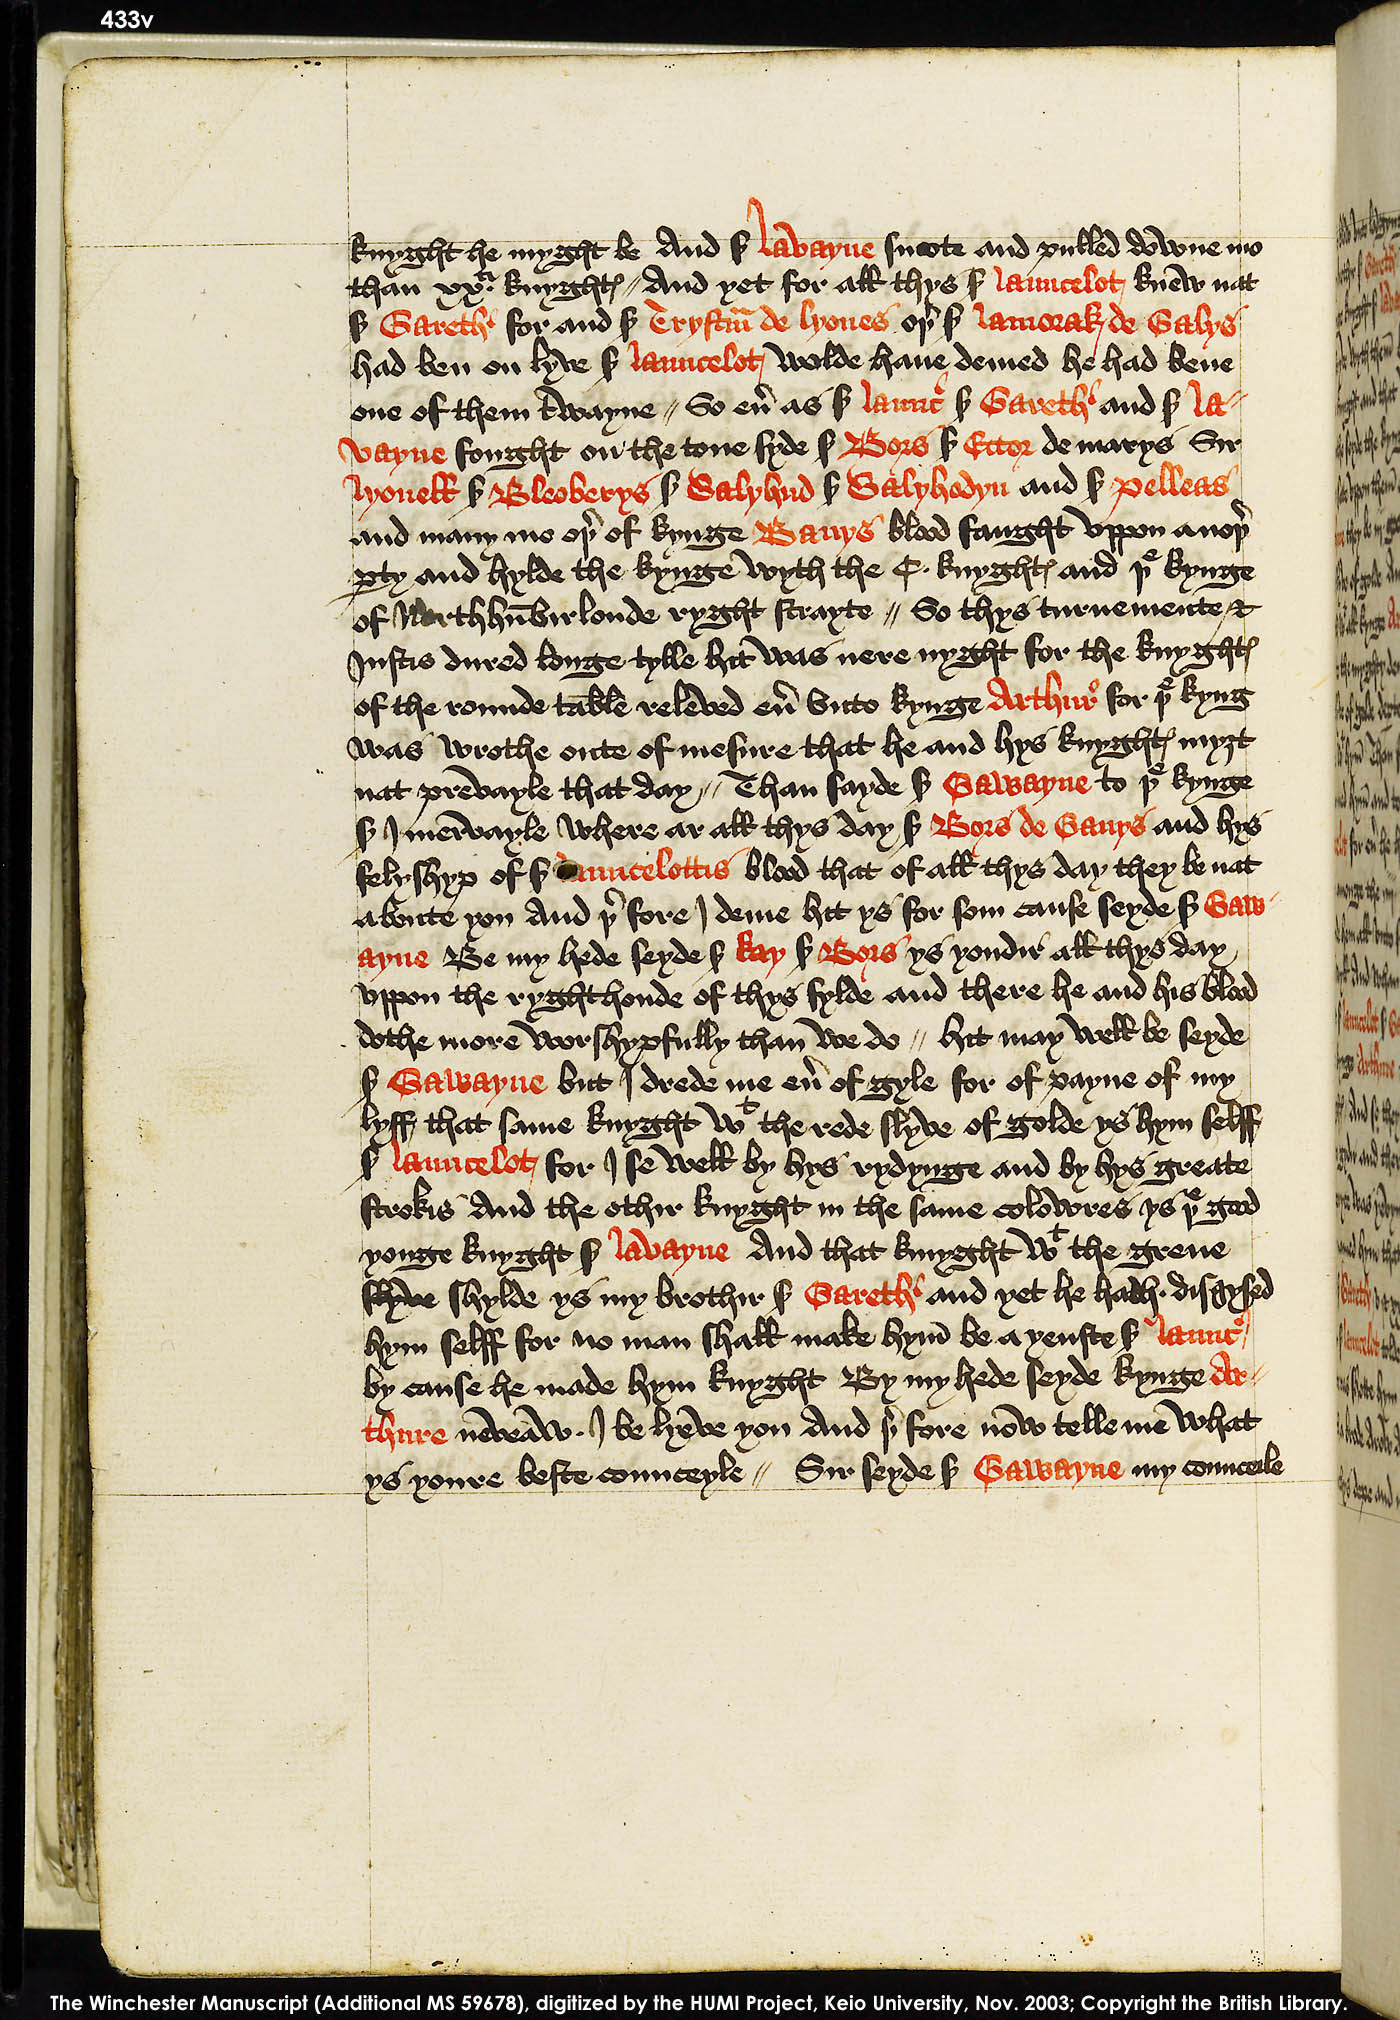 433v
knyght he myght be And s̄ Lavayne smote and pulled downe mo
than xxti knyghtꝭ // And yet for all thys s̄ Launcelot knew nat
s̄ Gareth for and s̄ Trystm̄ de lyones oþr s̄ Lamorak de Galys
had ben on lyve s̄ Launcelot wolde haue demed he had bene
one of them twayne // So eu̓ as s̄ Launc̓ s̄ Gareth and s̄ La-
vayne fought on the tone syde s̄ Bors s̄ Ector de marys Sir
lyonell s̄ Bleoberys s̄ Galyhud s̄ Galyhodyn and s̄ Pelleas
and many mo oþr of kynge Banys blood faught vppon anoþr
ꝑty and hylde the kynge wyth the C. knyghtꝭ and þe kynge
of Northhūbirlonde ryght strayte // So thys turnemente &
Justis dured longe tylle hit was nere nyght for the knyghtꝭ
of the rounde table releved eu̓ vnto kynge Arthur for þe kyng
was wrothe oute of mesure that he and hys knyghtꝭ myȝt
nat prevayle that day // Than sayde s̄ Gawayne to þe kynge
s̄ I mervayle where ar all thys day s̄ Bors de Ganys and hys
felyshyp of s̄ Launcelottis blood that of all thys day they be nat
aboute you And þr fore I deme hit ys for som cause seyde s̄ Gaw-
ayne Be my hede seyde s̄ kay s̄ Bors ys yondir all thys day
vppon the ryghthonde of thys fylde and there he and his blood
dothe more worshypfully than we do // hit may well be seyde
s̄ Gawayne but I drede me eu̓ of gyle for of payne of my
lyff that same knyght wt the rede slyve of golde ys hym selff
s̄ Launcelot for I se well by hys rydynge and by hys greate
strokis And the othir knyght in the same colowres ys þe good
yonge knyght s̄ Lavayne And that knyght wt the grene
slyve shylde ys my brothir s̄ Gareth and yet he hath disgysed
hym selff for no man shall make hym̄ be a yenste s̄ Launc̓
by cause he made hym knyght By my hede seyde kynge Ar-
thure neveaw. I be lyeve you And þr fore now telle me what
ys youre beste counceyle // Sir seyde s̄ Gawayne my counceile
The Winchester Manuscript (Additional MS 59678), digitized by the HUMI Project, Keio University, Nov. 2003; Copyright the British Library.